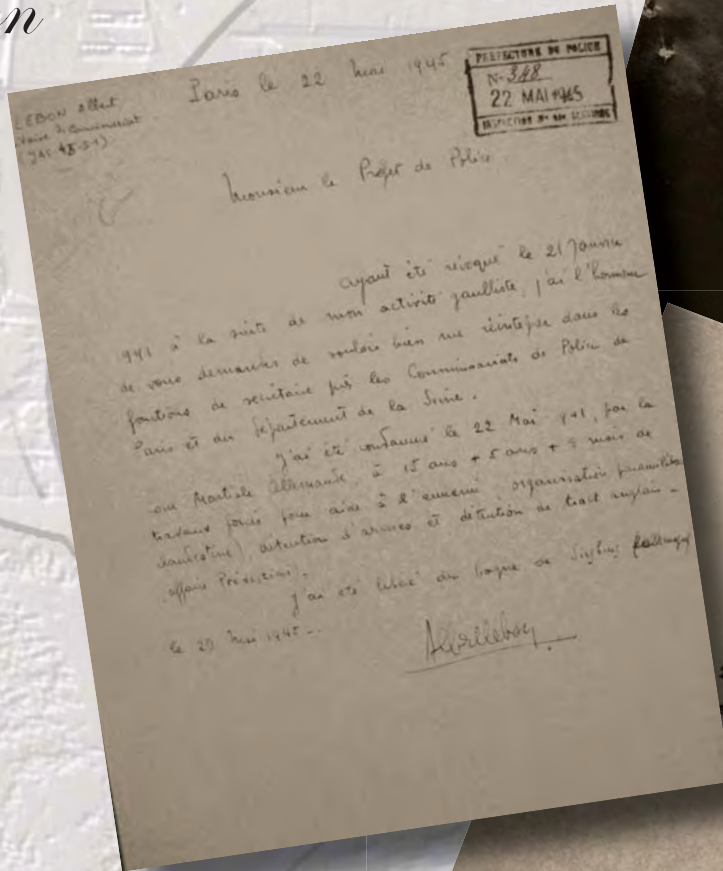 on
Paris le 22 Mai 1945
PREFECTURE DE POLICE
N° 348
22 MAI 1945
LEBON Albert
Monsieur le Préfet de Police
ayant été révoqué le 21 Janvier
1941 à la suite de mon activité gaulliste, j'ai l'honneur
de vous demander de vouloir bien me réintégrer dans les
fonctions de secrétaire près les Commissariats de Police de
Paris et du département de la Seine.
J'ai été condamné le 22 Mai 1941, par la
our Martiale Allemande, à 15 ans + 5 ans + 6 mois de
travaux forcés pour aide à l'ennemi, organisation
clandestine), détention d'armes et détention de tract anglais -
affaire
J'ai été libéré du bagne de
le 29 1945 -.
Albert Lebon